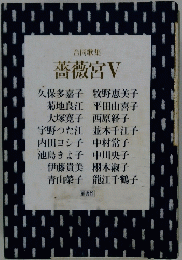 合同歌集
薔薇宮V
久保多嘉子 牧野恵美子
菊地良江 平田由喜子
大塚寛子 西原経子
宇野つた江 並木千江子
内田コシ子 中村常子
池島きよ子 中田央子
伊藤貴美 棚木淑子
青山榮子 龍江千鶴子